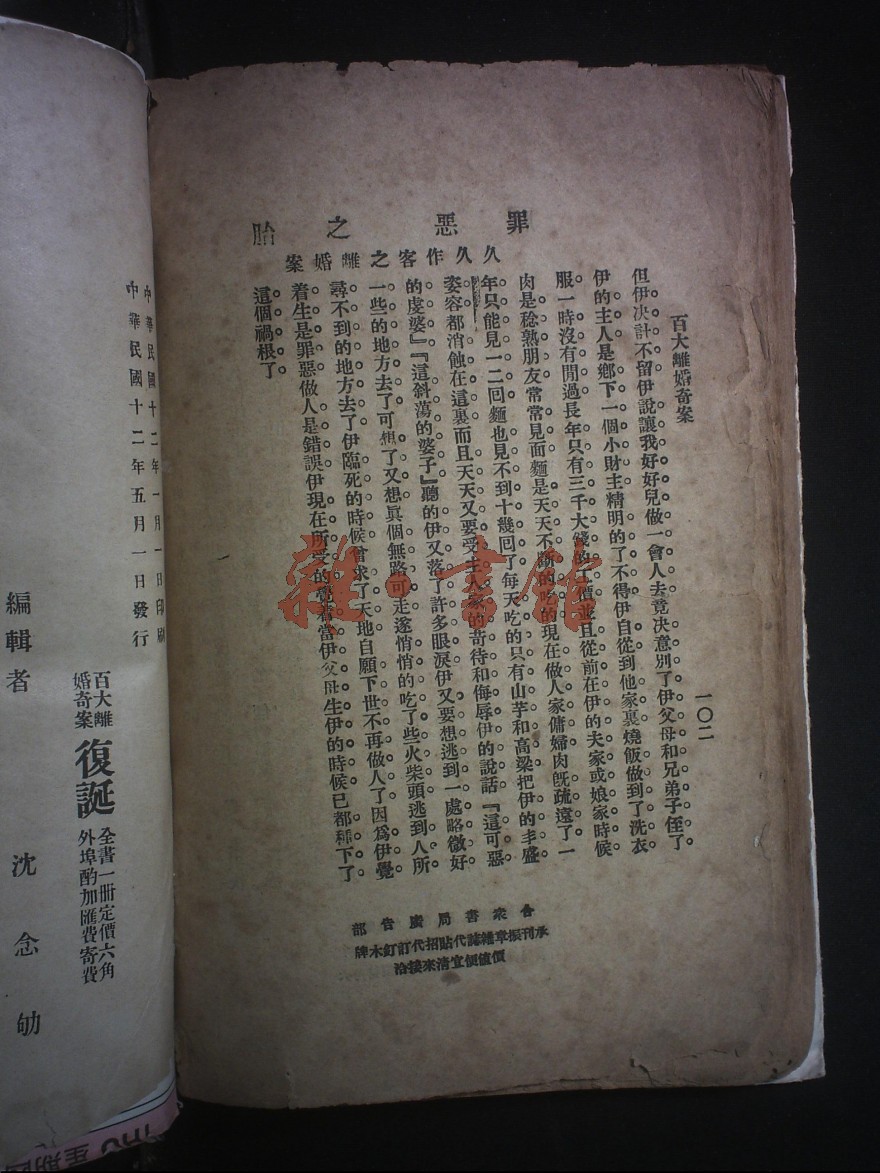 百大離婚奇案
一〇二
但伊决計不留伊說讓我好好兒做一會人去竟决意別了伊父母和兄弟子侄了。
伊的主人是鄉下一個小財主精明的了不得伊自從到他家裏燒飯做到了洗衣
服一時沒有閒過長年只有三千大錢的工價並且從前在伊的夫家或娘家時候
肉是稔熟朋友常常見面麵是天天不斷的吃的現在做人家傭婦肉旣疏遠了一
年只能見一二回麵也見不到十幾囘了每天吃的只有山芋和高粱把伊的丰盛
姿容都消蝕在這裏而且天天又要受主人家的苛待和侮辱伊的說話『這可惡
的虔婆』『這斜蕩的婆子』聽的伊又落了許多眼淚伊又要想逃到一處略微好
一些的地方去了可想了又想眞個無路可走遂悄悄的吃了些火柴頭逃到人所
尋不到的地方去了伊臨死的時候曾求了天地自願下世不再做人了因爲伊覺
着生是罪惡做人是錯誤伊現在所受的覺着當伊父母生伊的時候已都種下了
這個禍根了。
罪惡之胎
久久作客之離婚案
合衆書局廣告部
承刊報章雜誌代貼招代訂釘木牌
價值便宜請來接洽
中華民國十二年一月一日印刷
中華民國十二年五月一日發行
百大離婚奇案
復誕
全書一册定價六角
外埠酌加匯費寄費
編輯者 沈念劬
雜·書館
THU 星期四